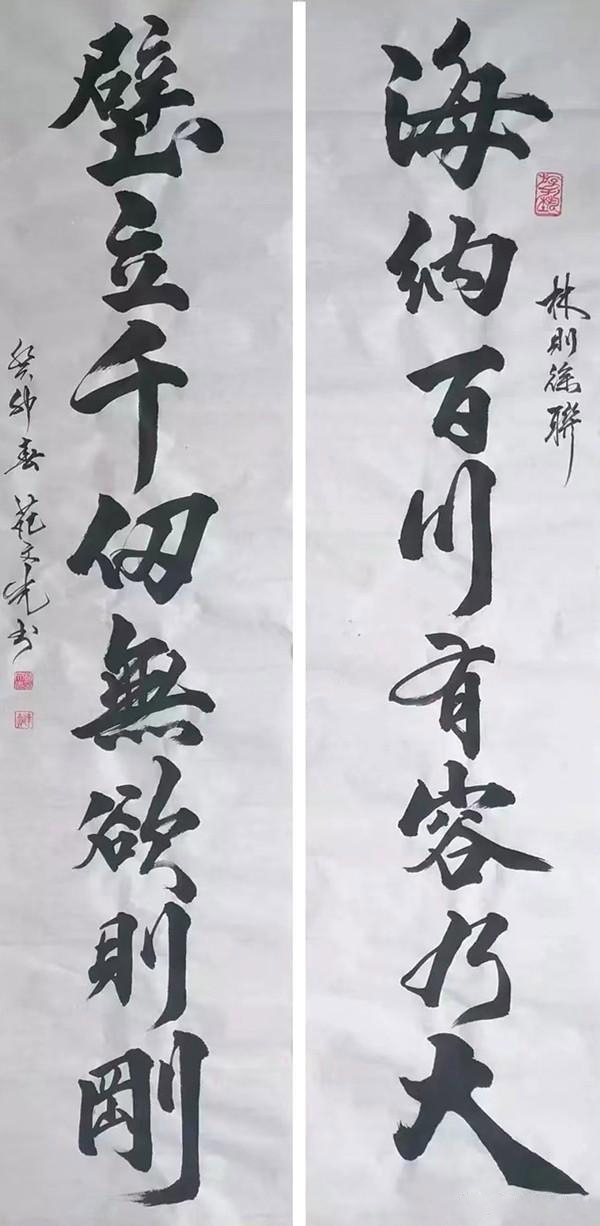 海纳百川有容乃大
林则徐联
壁立千仞無欲则剛
癸卯春范文先书